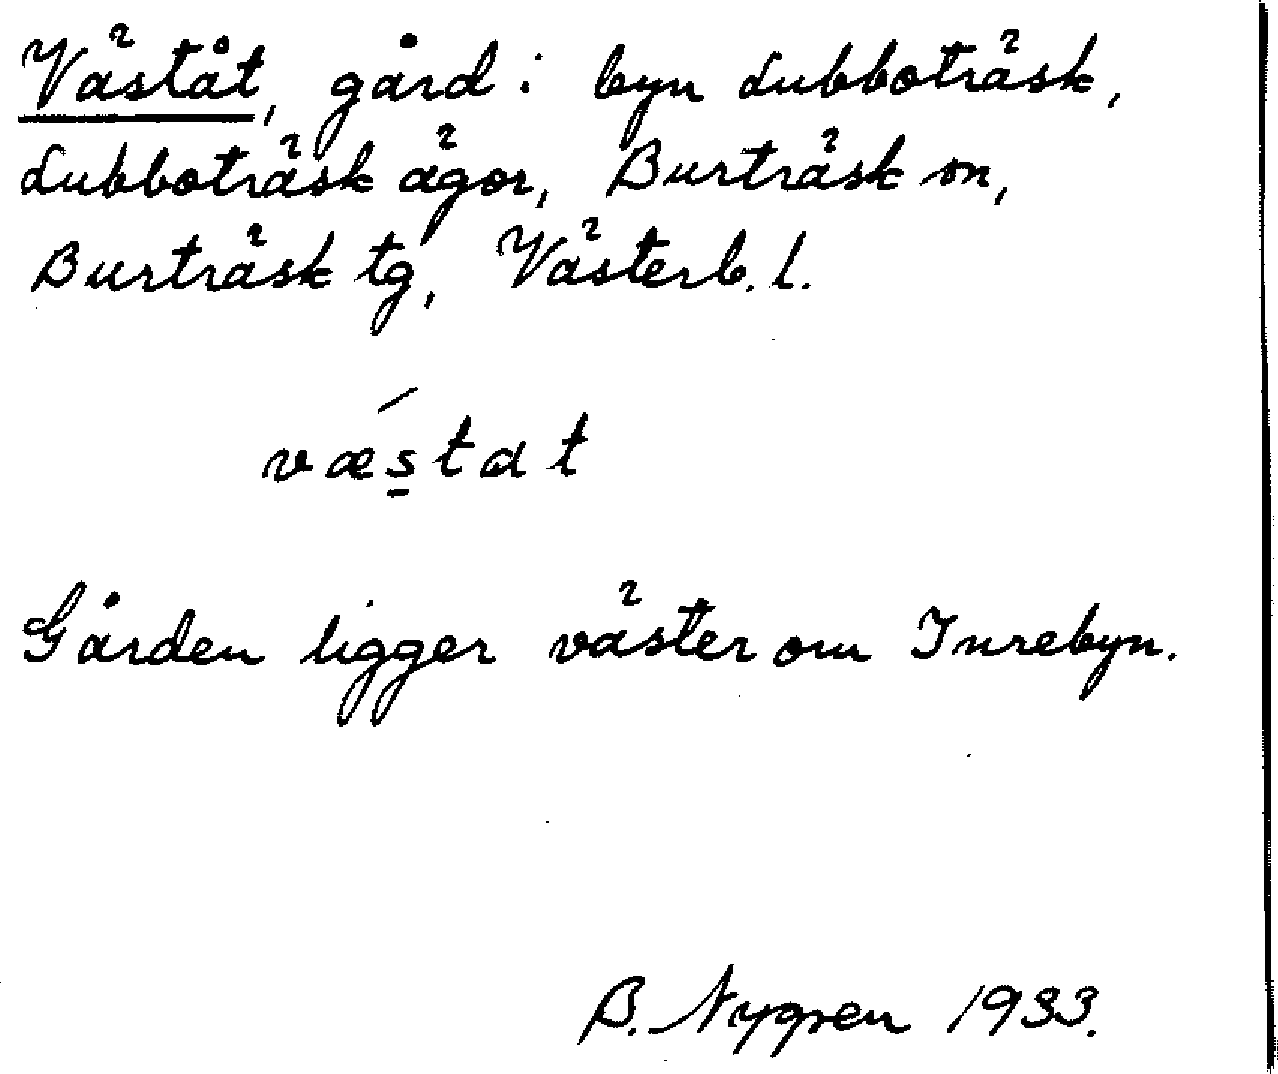 Väståt, gård i byn Lubboträsk,
Lubboträsk ägor, Burträsk sn,
Burträsk tg, Västerb. l.
vǽs̠tat
Gården ligger väster om Inrebyn.
B. Nygren 1933.